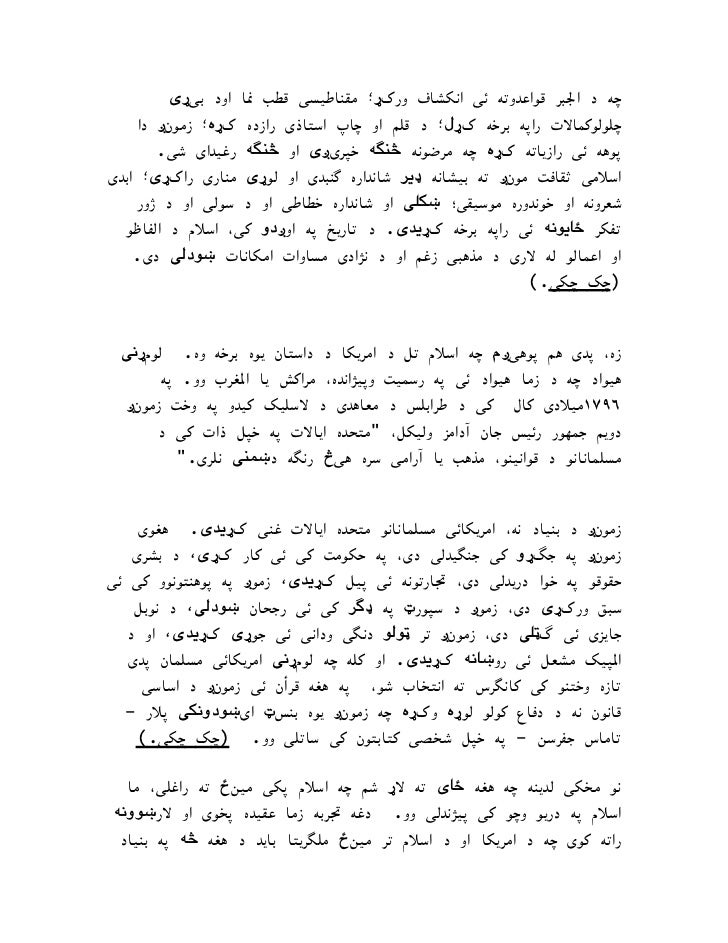 چه د الجبر قواعدوته ئی انکشاف ورکړ؛ مقناطیسی قطب نما اود بیړی
چلولوکمالات راپه برخه کړل؛ د قلم او چاپ استاذی رازده کړه؛ زمونږ دا
پوهه ئی رازباته کړه چه مرضونه څنګه خپریږی او څنګه رغیدای شی.
اسلامی ثقافت مونږ ته بیشانه ډیر شانداره گنبدی او لوړی مناری راکړی؛ ابدی
شعرونه او خوندوره موسیقی؛ ښکلی او شانداره خطاطی او د سولی او د ژور
تفکر ځایونه ئی راپه برخه کړیدی. د تاریخ په اوږدو کی، اسلام د الفاظو
او اعمالو له لاری د مذهبی زغم او د نژادی مساوات امکانات ښودلی دی.
(چک چکی.)
زه، پدی هم پوهیږم چه اسلام تل د امریکا د داستان یوه برخه وه. لومړنی
هیواد چه د زما هیواد ئی په رسمیت وپیژانده، مراکش یا المغرب وو. په
۱۷۹٦میلادی کال کی د طرابلس د معاهدی د لاسلیک کیدو په وخت زمونږ
دویم جمهور رئیس جان آدامز ولیکل، "متحده ایالات په خپل ذات کی د
مسلمانانو د قوانینو، مذهب یا آرامی سره هیڅ رنگه دښمنی نلری."
زمونږ د بنیاد نه، امریکائی مسلمانانو متحده ایالات غنی کړیدی. هغوی
زمونږ په جګړو کی جنگیدلی دی، په حکومت کی ئی کار کړی، د بشری
حقوقو په خوا دریدلی دی، تجارتونه ئی پیل کړیدی، زموږ په پوهنتونوو کی ئی
سبق ورکړی دی، زموږ د سپورټ په ډګر کی ئی رجحان ښودلی، د نوبل
جایزی ئی ګټلی دی، زمونږ تر ټولو دنگی ودانی ئی جوړی کړیدی، او د
المپیک مشعل ئی روښانه کړیدی. او کله چه لومړنی امریکائی مسلمان پدی
تازه وختنو کی کانگرس ته انتخاب شو، په هغه قرأن ئی زمونږ د اساسی
قانون نه د دفاع کولو لوړه وکړه چه زمونږ یوه بنسټ ایښودونکی پلار –
تاماس جفرسن – په خپل شخصی کتابتون کی ساتلی وو. (چک چکی.)
نو مخکی لدینه چه هغه ځای ته لاړ شم چه اسلام پکی مینځ ته راغلی، ما
اسلام په دریو وچو کی پیژندلی وو. دغه تجربه زما عقیده پخوی او لارښوونه
راته کوی چه د امریکا او د اسلام تر مینځ ملگریتا باید د هغه څه په بنیاد